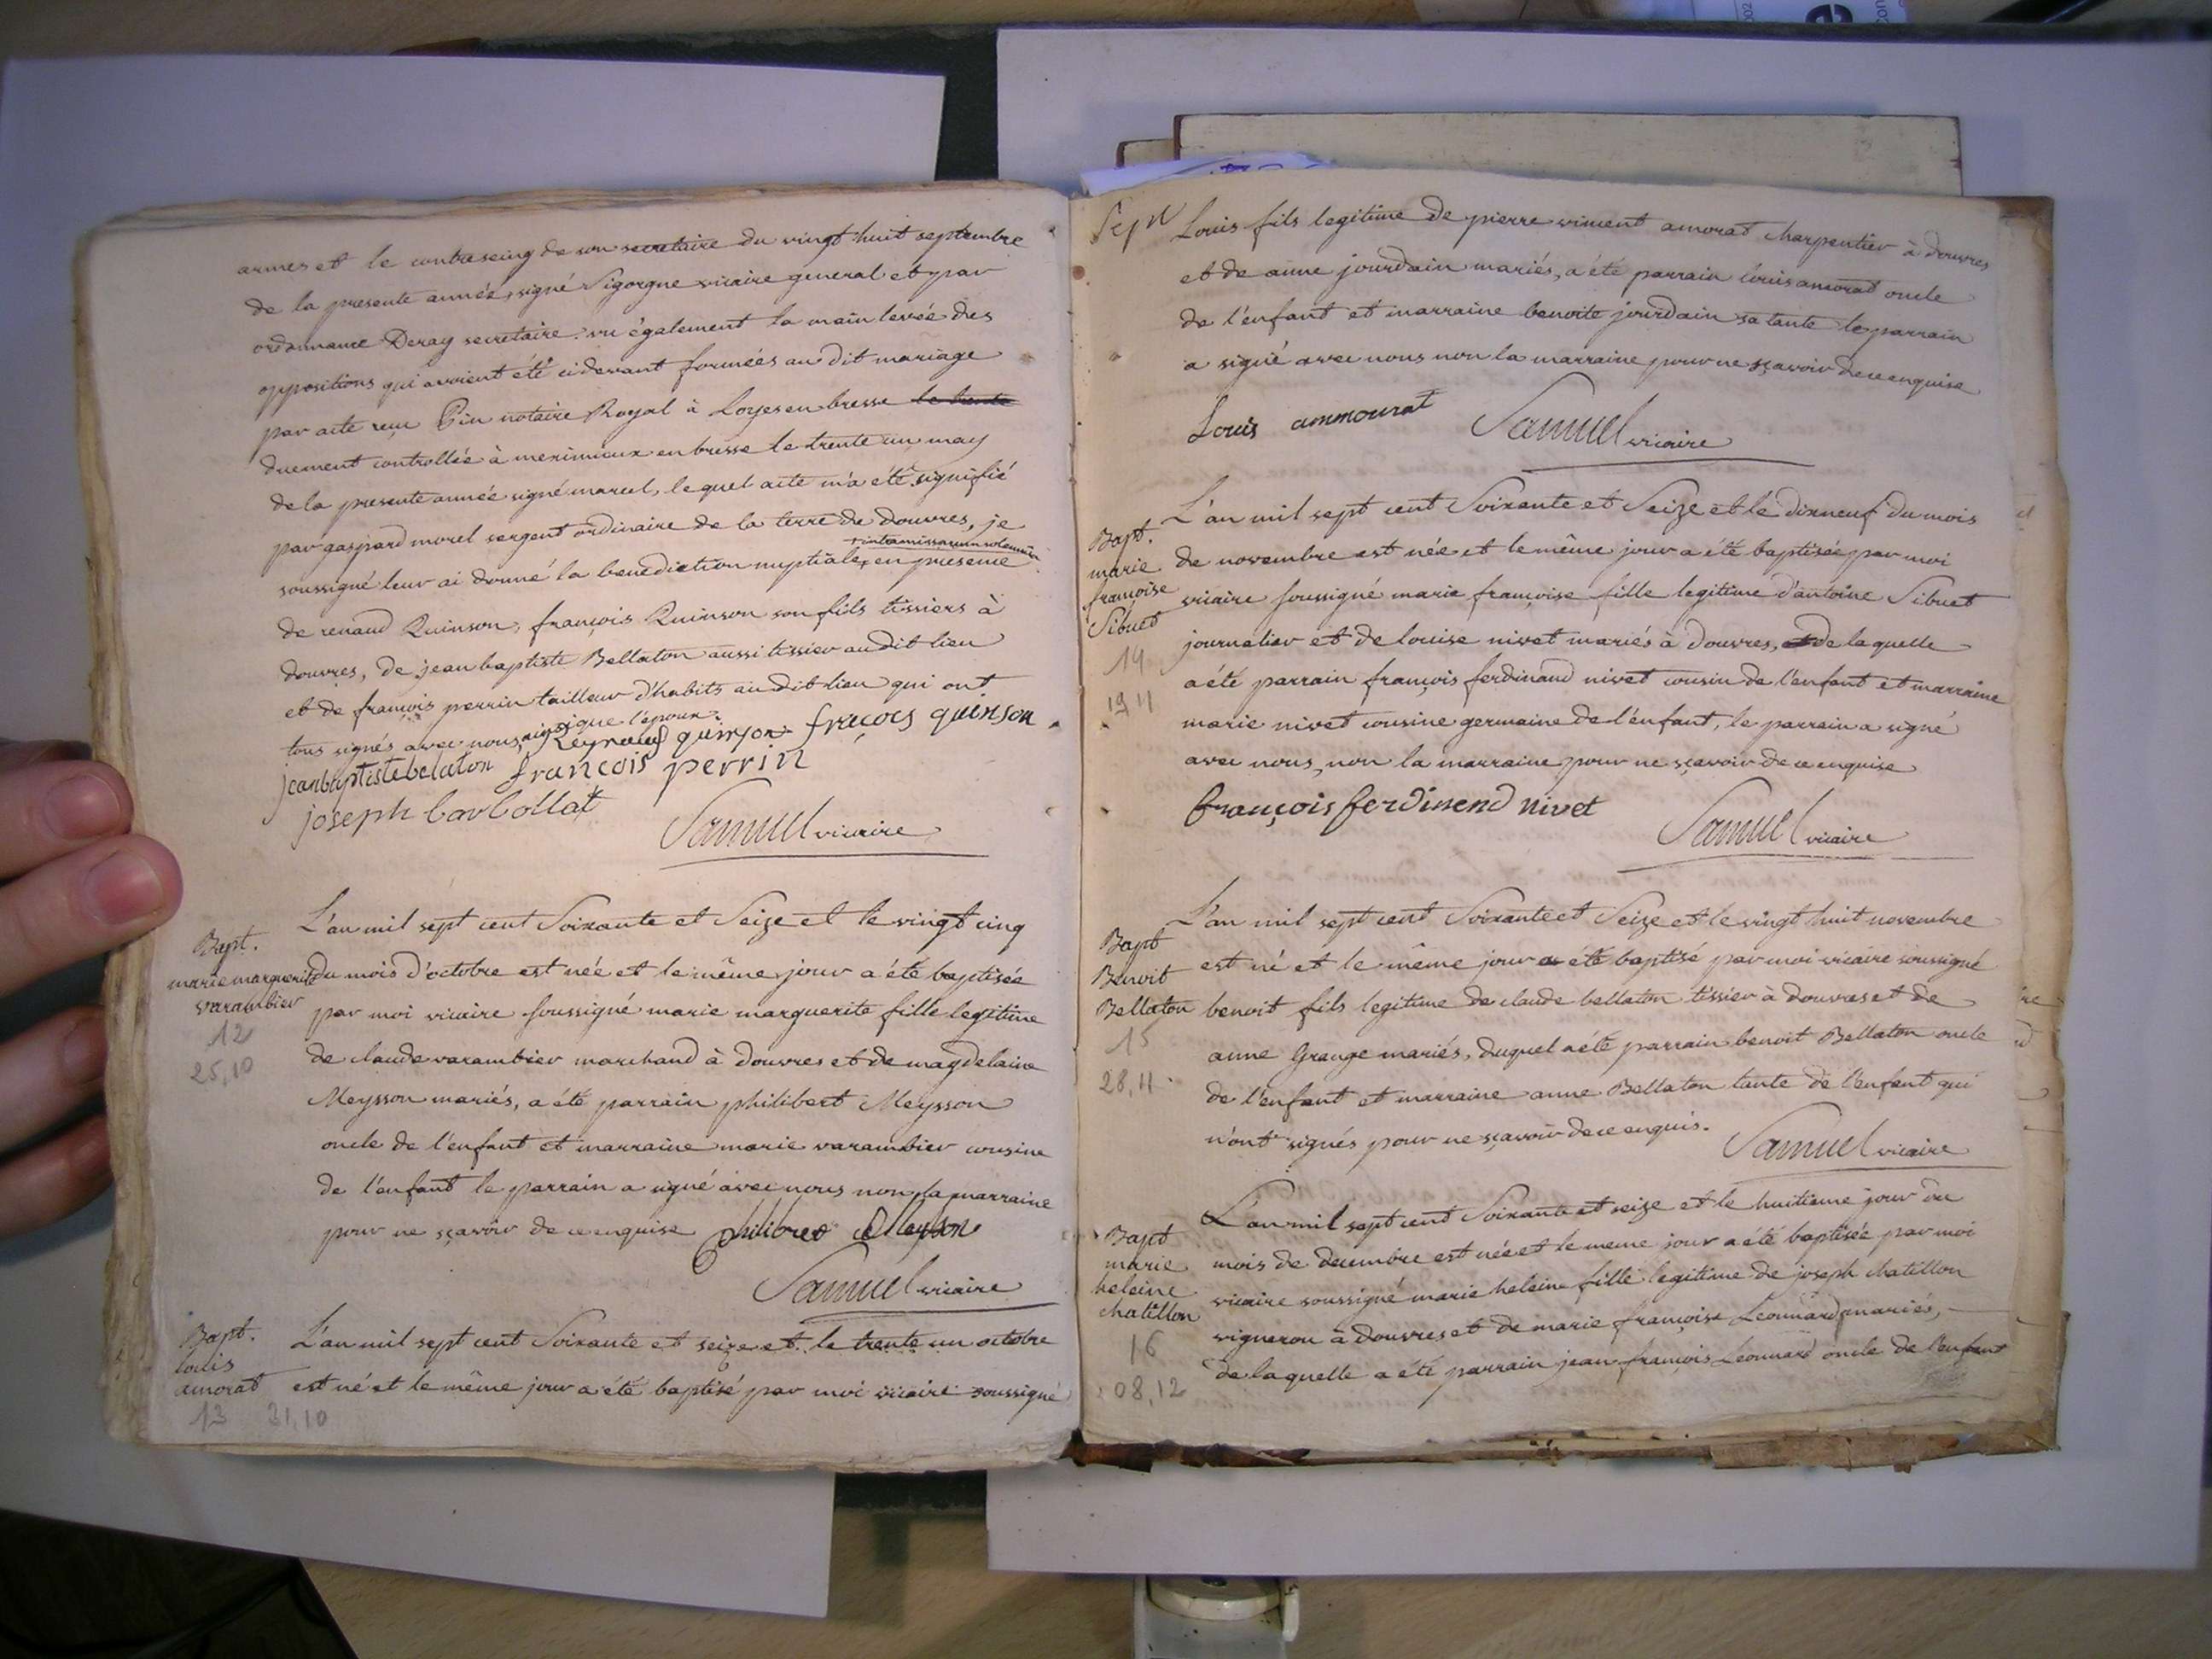 armes et le contreseing de son secretaire du vingt huit septembre
de la presente année, signé Sigorgne vicaire general et par
ordonnance Deray secretaire. vu également la main levée des
oppositions qui avoient été cidevant formées au dit mariage
par acte reçu Pin notaire Royal à Loyes en bresse le trente
duement controllée à meximieux en bresse le trente un may
de la presente année signé marcel, le quel acte m'a été signifié
par gaspard morel sergent ordinaire de la terre de douvres, je
+ intra missarum solemnia
soussigné leur ai donné la benediction nuptiale + en presence
de renaud Quinson, françois Quinson son fils tissiers à
douvres, de jean baptiste Bellaton aussi tissier au dit lieu
et de françois perrin tailleur d'habits au dit lieu qui ont
tous signés avec nous ainsi que l'epoux. Reynaud quinson françois quinson
jean baptiste belaton francois perrin
joseph
Samuel vicaire
Bapt.
marie marguerite
varambier
12
25,10
L'an mil sept cent Soixante et Seize et le vingt cinq
du mois d'octobre est née et le même jour a été baptisée
par moi vicaire soussigné marie marguerite fille legitime
de claude varambier marchand à douvres et de magdelaine
Meysson mariés, a été parrain philibert Meysson
oncle de l'enfant et marraine marie varambier cousine
de l'enfant le parrain a signé avec nous non la marraine
pour ne sçavoir de ce enquise philibert Meysson
Samuel vicaire
Bapt.
louis
amorat
13 31,10
L'an mil sept cent Soixante et seize et le trente un octobre
est né et le même jour a été baptisé par moi vicaire soussigné
Louis fils legitime de pierre vincent amorat charpentier à douvres
et de anne jourdain mariés, a été parrain louis amorat oncle
de l'enfant et marraine benoite jourdain sa tante le parrain
a signé avec nous non la marraine pour ne sçavoir de ce enquise
Louis ammourat Samuel vicaire
Bapt.
marie
françoise
Sibuet
14
19 11
L'an mil sept cent Soixante et Seize et le dixneuf du mois
de novembre est née et le même jour a été baptisée par moi
vicaire soussigné marie françoise fille legitime d'antoine Sibuet
journalier et de louise nivet mariés à douvres, de laquelle
a été parrain françois ferdinand nivet cousin de l'enfant et marraine
marie nivet cousine germaine de l'enfant, le parrain a signé
avec nous, non la marraine pour ne sçavoir de ce enquise
françois ferdinend nivet Samuel vicaire
Bapt
Benoit
Bellaton
15
28,11
L'an mil sept cent Soixante et Seize et le vingt huit novembre
est né et le même jour a été baptisé par moi vicaire soussigné
benoit fils legitime de claude bellaton tissier à douvres et de
anne Grange mariés, duquel a été parrain benoit Bellaton oncle
de l'enfant et marraine anne Bellaton tante de l'enfant qui
n'ont signés pour ne sçavoir de ce enquis. Samuel vicaire
Bapt
marie
heleine
chatillon
16
08,12
L'an mil sept cent Soixante et seize et le huitieme jour du
mois de decembre est née et le meme jour a été baptisée par moi
vicaire soussigné marie heleine fille legitime de joseph chatillon
vigneron à douvres et de marie françoise Leonnard mariés,
de laquelle a été parrain jean françois Leonnard oncle de l'enfant